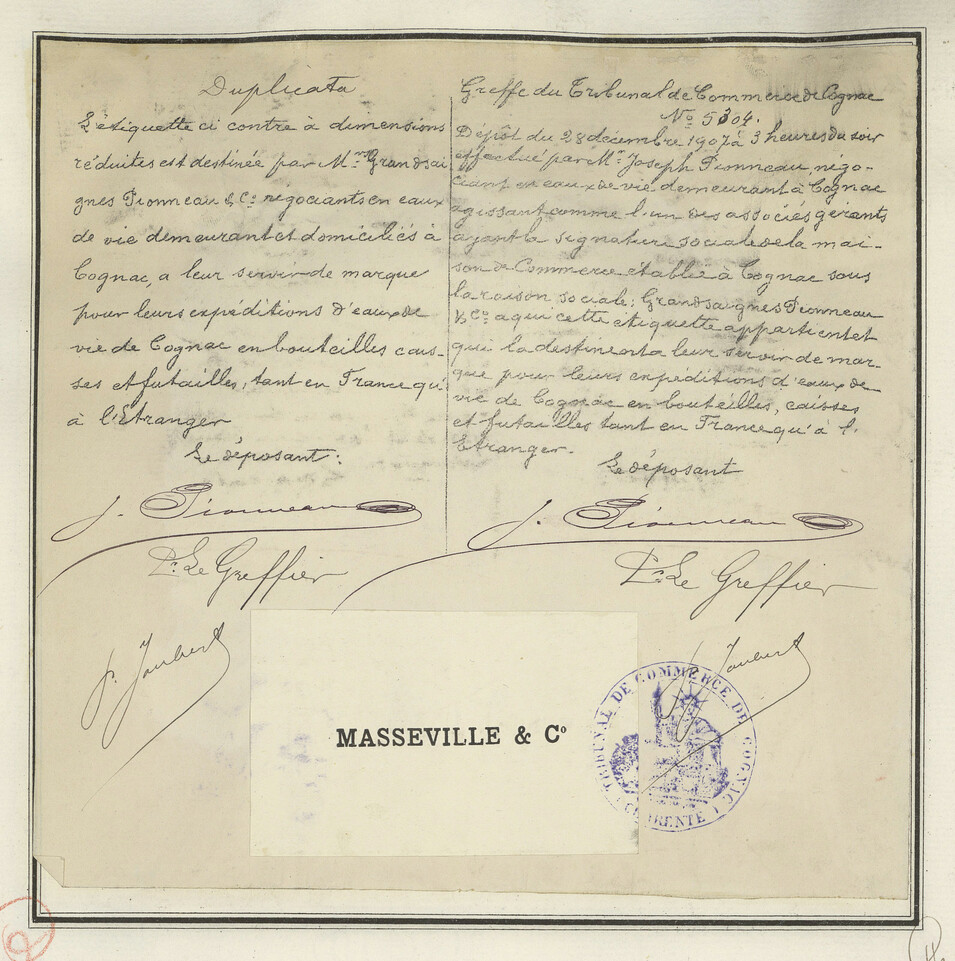 Duplicata
L'étiquette ci contre à dimensions
réduites est destinée par Mrs Grandsai
gnes Pionneau & Co négociants en eaux
de vie demeurant et domiciliés à
Cognac, a leur servir de marque
pour leurs expéditions d'eaux de
vie de Cognac en bouteilles cais-
ses et futailles, tant en France qu'
à l'Etranger
Le déposant:
J. Pionneau
Pr. Le Greffier
P. Joubert
Greffe du Tribunal de Commerce de Cognac
No 5304.
Dépôt du 28 décembre 1907 à 3 heures du soir
effectué par Mr Joseph Pionneau négo-
ciant en eaux de vie demeurant à Cognac
agissant comme l'un des associés gérants
ayant la signature sociale de la mai-
son de Commerce établie à Cognac sous
la raison sociale; Grandsaignes Pionneau
& Co a qui cette etiquette appartient et
qui la destinent a leur servir de mar-
que pour leurs expéditions d'eaux de
vie de Cognac en bouteilles, caisses
et futailles tant en France qu'à l'
Etranger.
Le déposant
J. Pionneau
Pr. Le Greffier
Joubert
MASSEVILLE & Co
TRIBUNAL DE COMMERCE DE COGNAC
(CHARENTE)